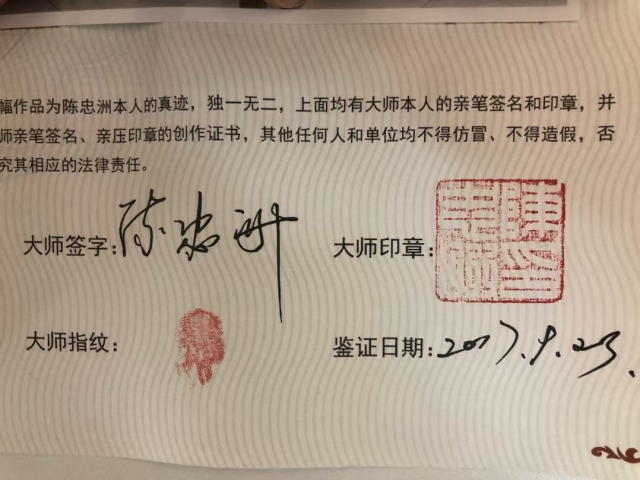 幅作品为陈忠洲本人的真迹，独一无二，上面均有大师本人的亲笔签名和印章，并
师亲笔签名、亲压印章的创作证书，其他任何人和单位均不得仿冒、不得造假，否
究其相应的法律责任。
大师签字：陈忠洲
大师印章：
大师指纹：
鉴证日期：2017.9.23.